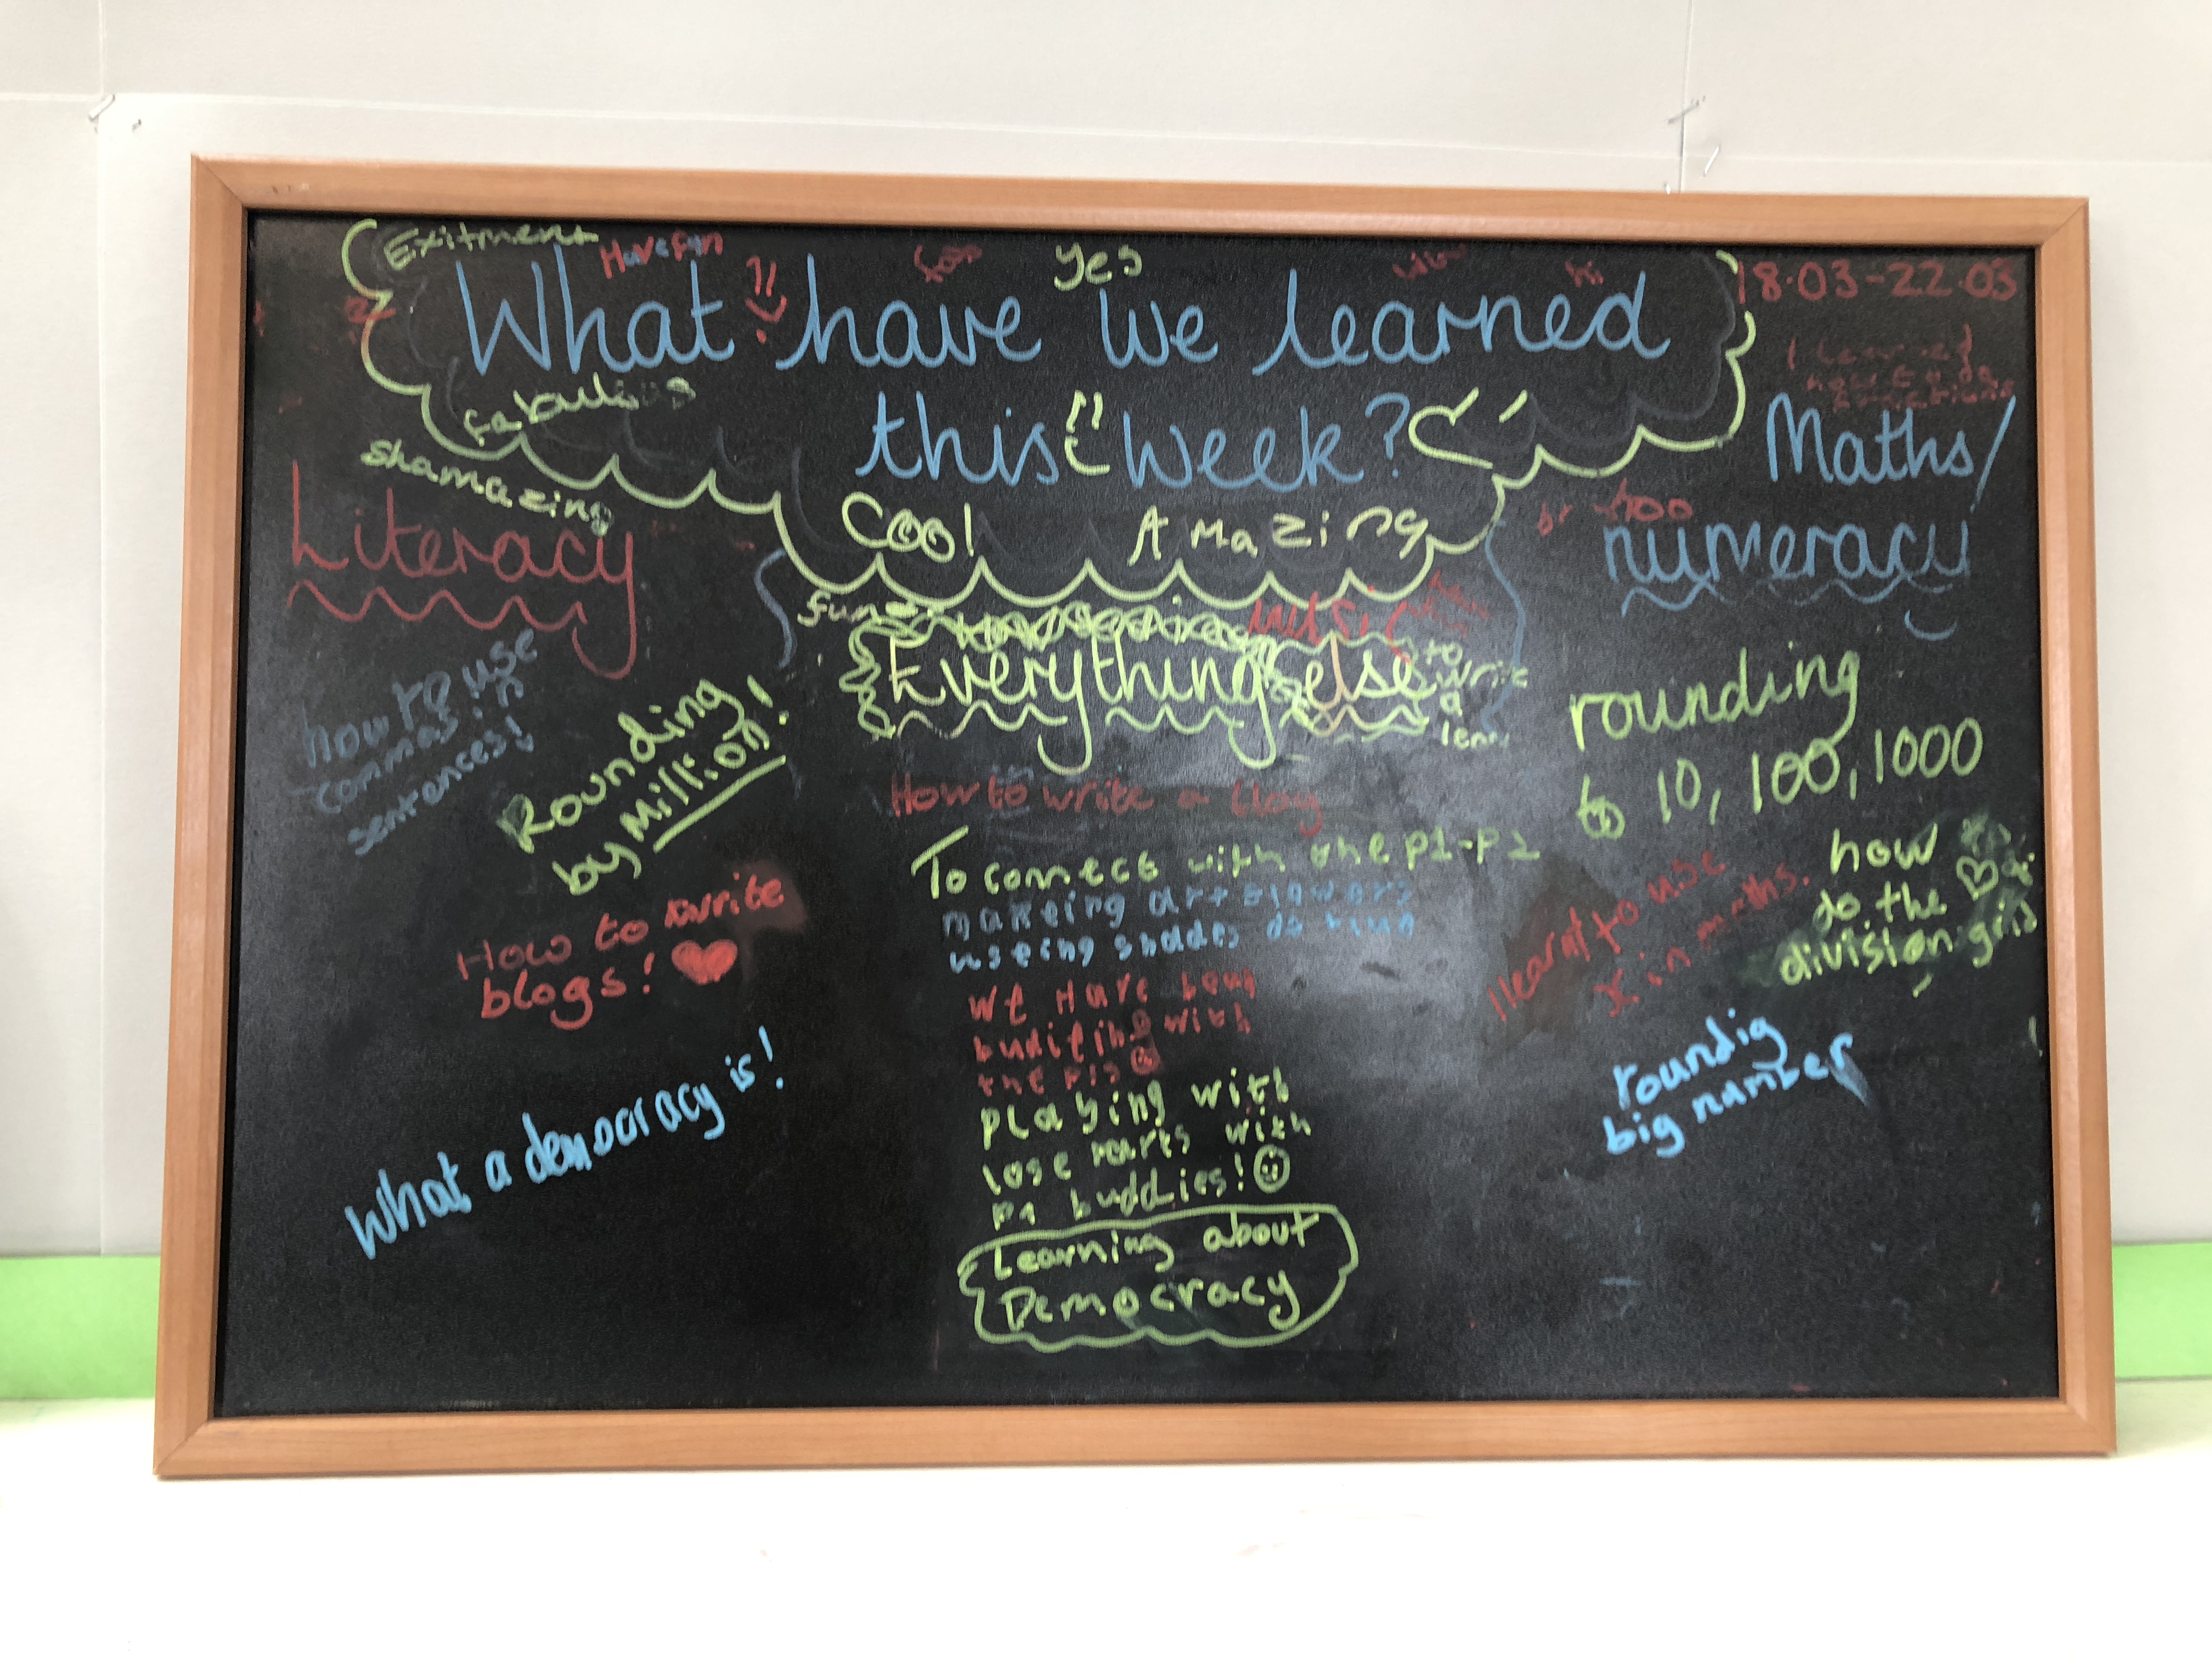 Exitment
Have fun
Yes
hi
18.03-22.03
What have we learned
this week?
fabulous
shamazing
Cool Amazing
I learned
how to do
Literacy
Maths/
numeracy
fun
Music
Everything else
to
write
a
how to use
commas in
sentences!
Rounding
by Million!
How to write
blogs! ♥
What a democracy is!
How to write a blog
To connect with the p1-p2
making art flowers
useing shades
We Have been
with
the P1s
playing with
lose parts with
P1 buddies!
Learning about
Democracy
rounding
to 10, 100, 1000
I learnt to use
x in maths.
how
do the
division grid
roundig
big number